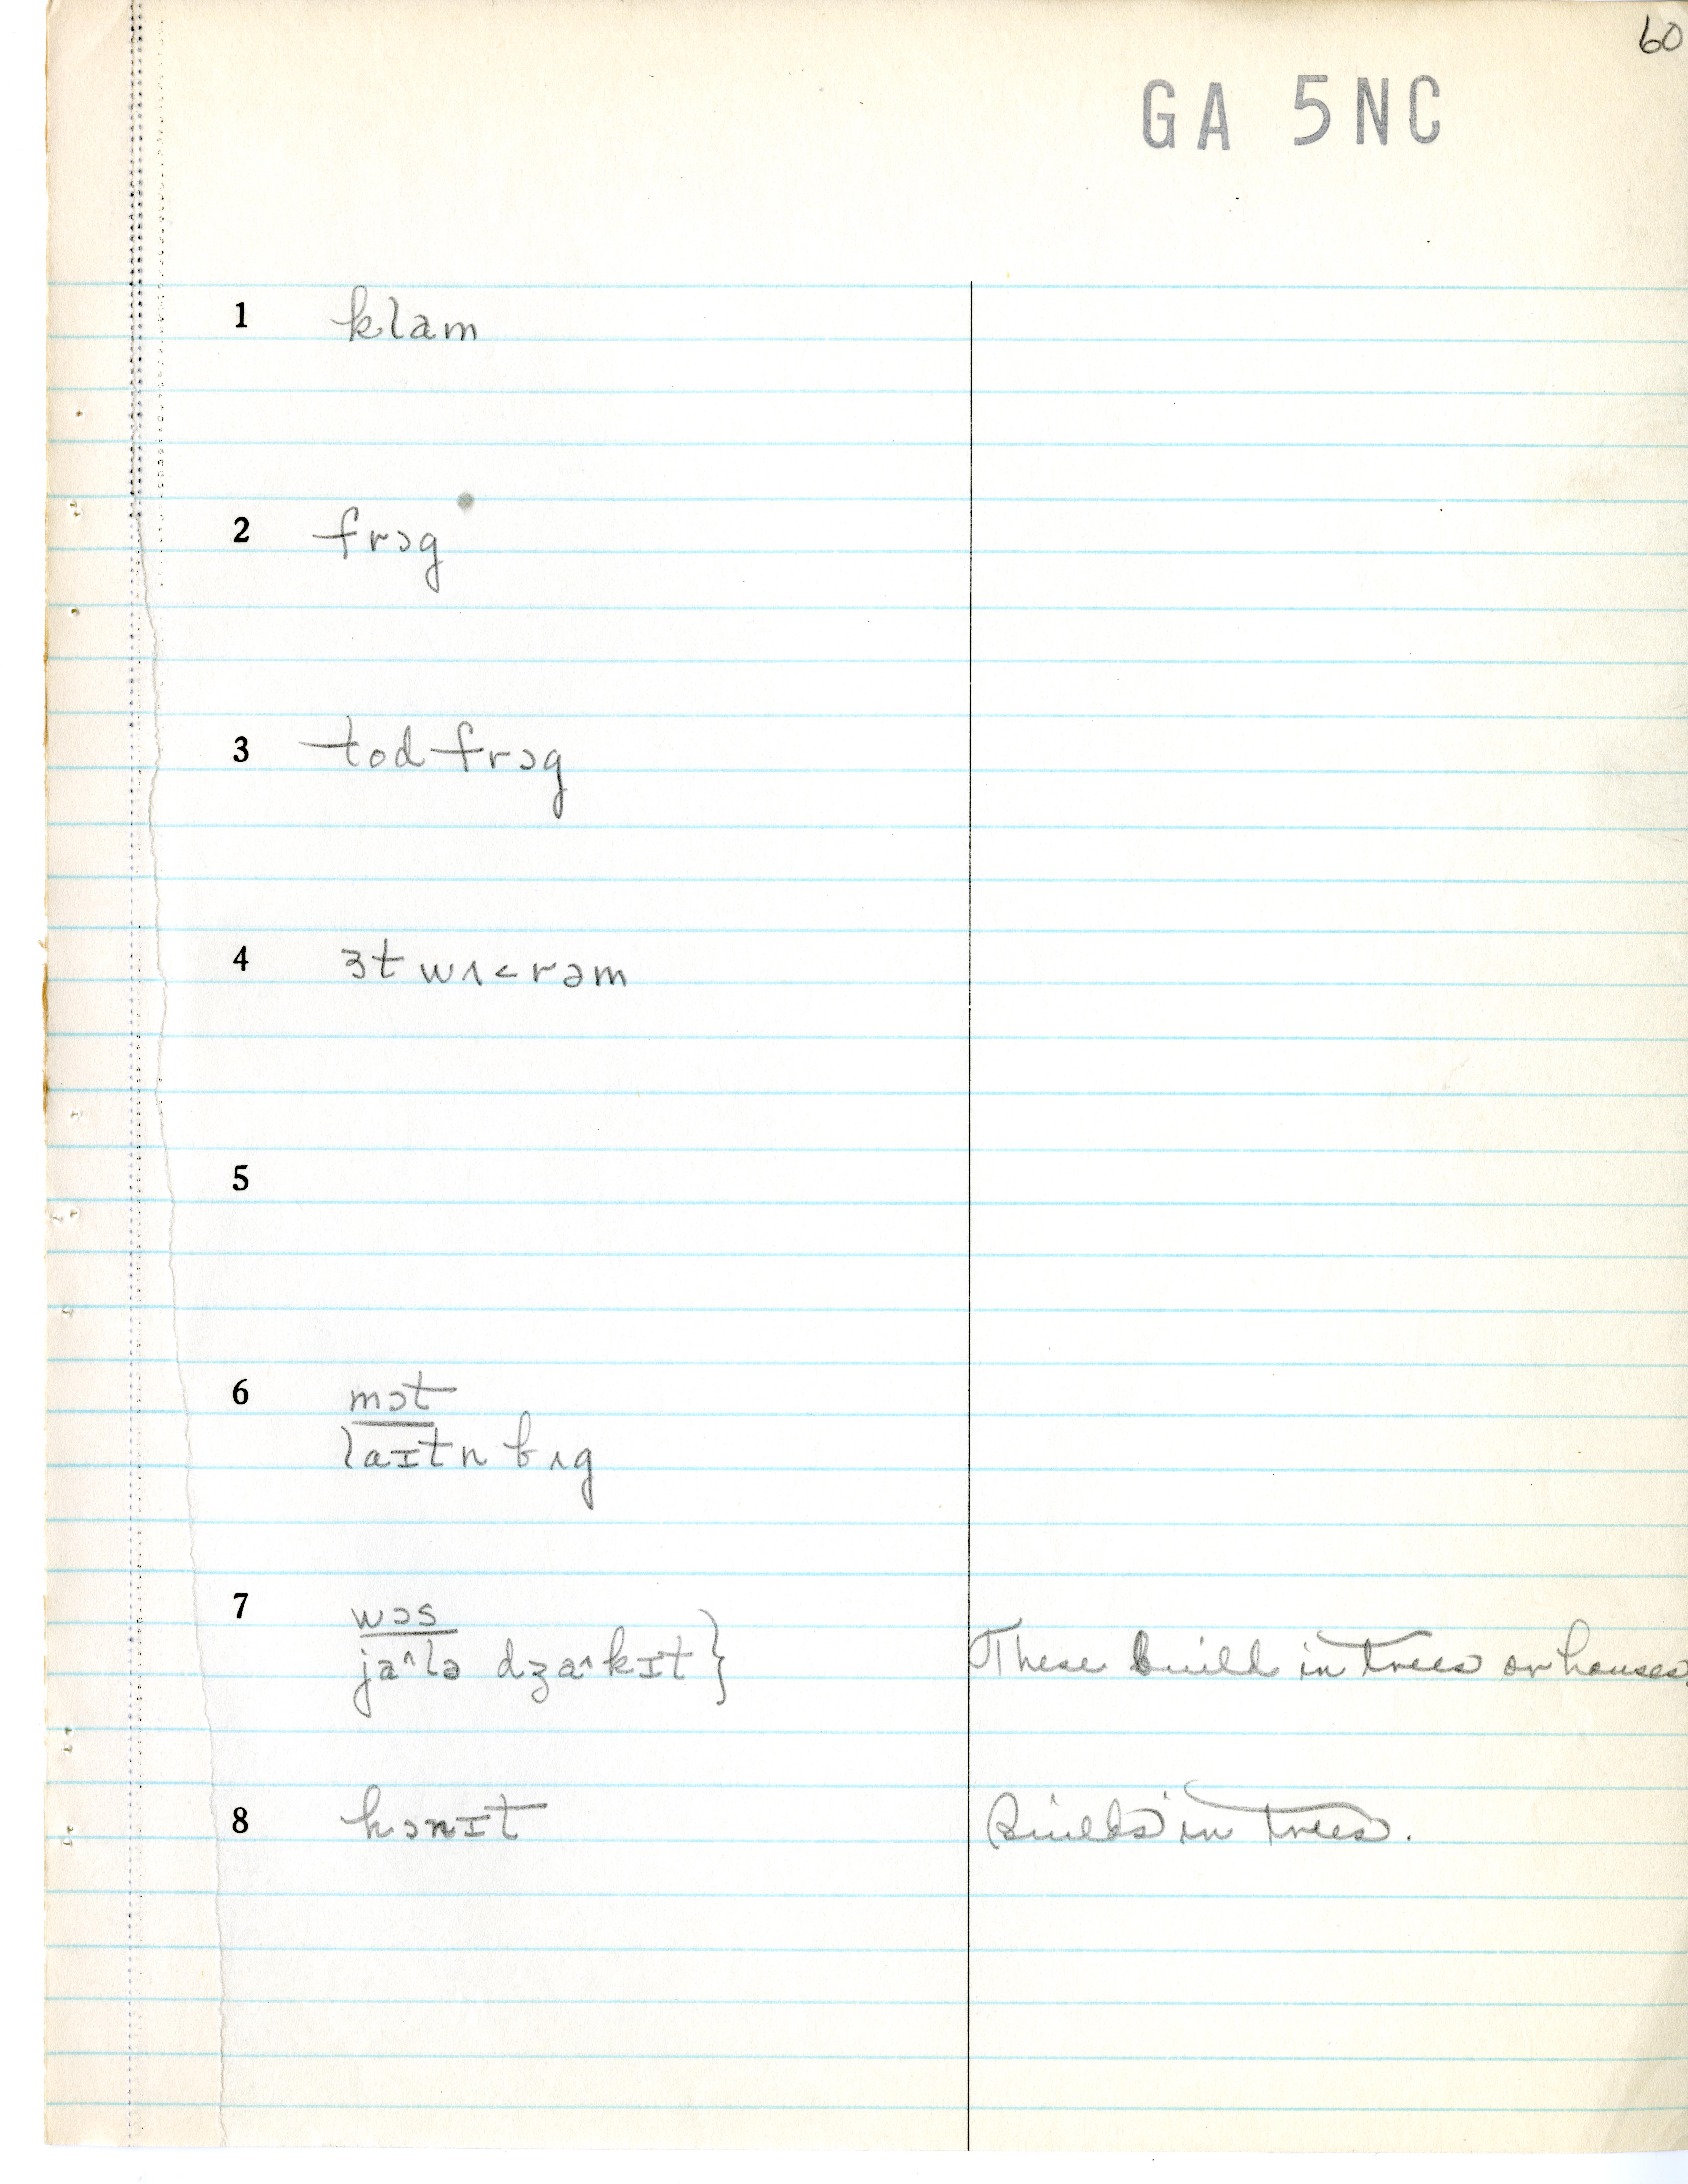 60
GA 5NC
1 klam
2 frɔg
3 tod frɔg
4 ɜt wʌ<rəm
5
6 mɔt
laɪtn bʌg
7 wɔs
ja^lə dʒa^kɪt } These build in trees or houses.
8 hɔnɪt Builds in trees.